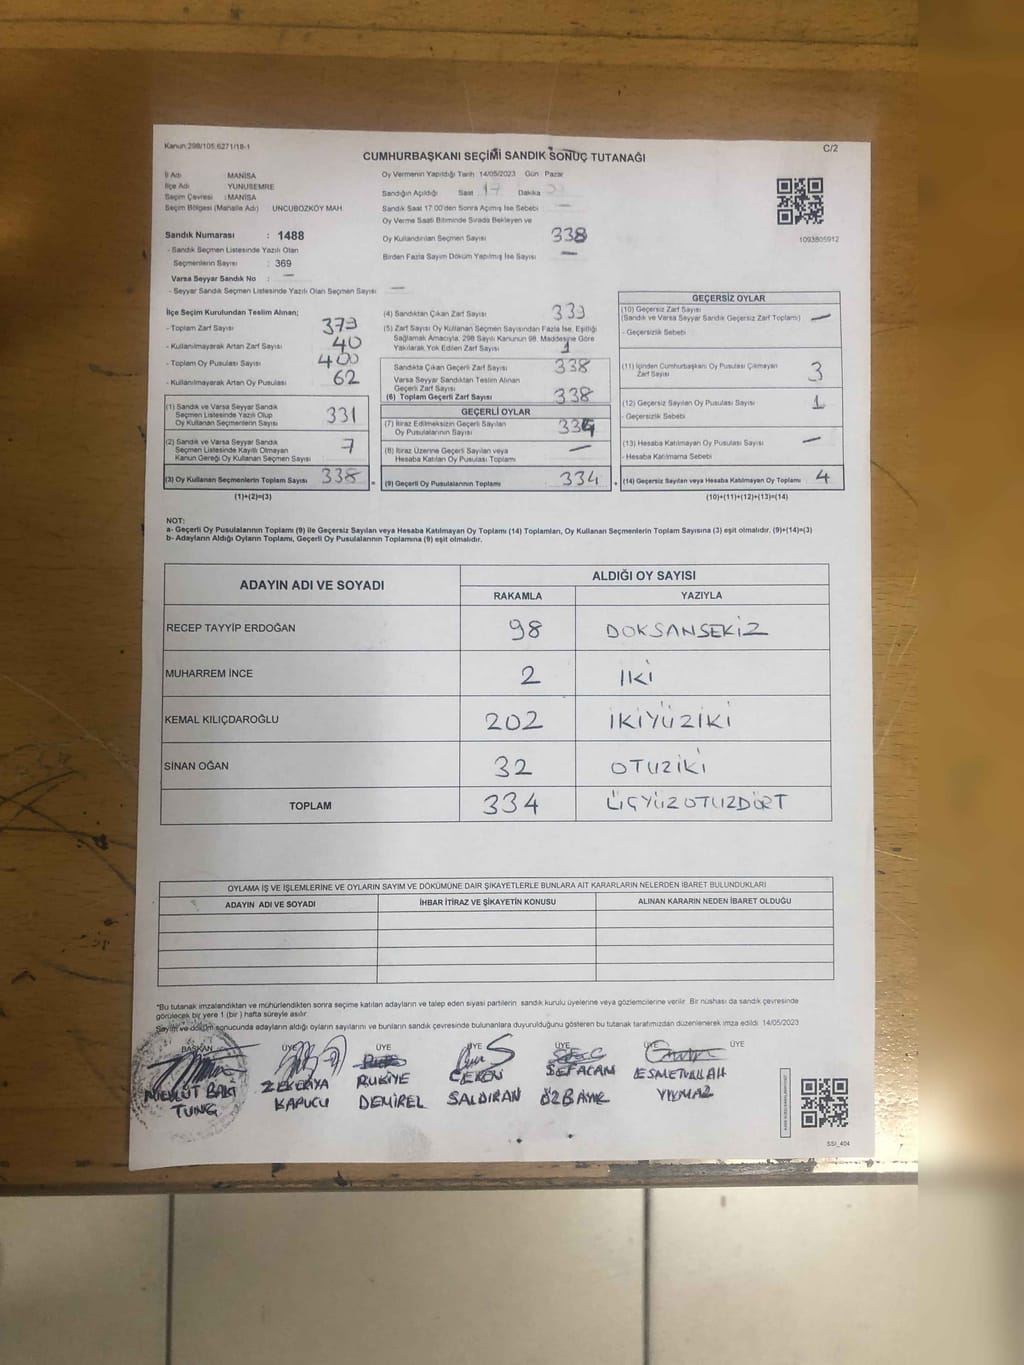 Kanun:298/105,6271/18-1
C/2
CUMHURBAŞKANI SEÇİMİ SANDIK SONUÇ TUTANAĞI
İl Adı MANİSA
İlçe Adı YUNUSEMRE
Seçim Çevresi : MANİSA
Seçim Bölgesi (Mahalle Adı) UNCUBOZKÖY MAH.
Sandık Numarası : 1488
- Sandık Seçmen Listesinde Yazılı Olan
Seçmenlerin Sayısı : 369
Varsa Seyyar Sandık No : —
- Seyyar Sandık Seçmen Listesinde Yazılı Olan Seçmen Sayısı —
Oy Vermenin Yapıldığı Tarih 14/05/2023 Gün Pazar
Sandığın Açıldığı Saat 17 Dakika
Sandık Saat 17.00'den Sonra Açılmış İse Sebebi —
Oy Verme Saati Bitiminde Sırada Bekleyen ve
Oy Kullandırılan Seçmen Sayısı 338
Birden Fazla Sayım Döküm Yapılmış İse Sayısı —
1093805912
İlçe Seçim Kurulundan Teslim Alınan;
- Toplam Zarf Sayısı 379
- Kullanılmayarak Artan Zarf Sayısı 40
- Toplam Oy Pusulası Sayısı 400
- Kullanılmayarak Artan Oy Pusulası 62
(1) Sandık ve Varsa Seyyar Sandık
Seçmen Listesinde Yazılı Olup
Oy Kullanan Seçmenlerin Sayısı 331
(2) Sandık ve Varsa Seyyar Sandık
Seçmen Listesinde Kayıtlı Olmayan
Kanun Gereği Oy Kullanan Seçmen Sayısı 7
(3) Oy Kullanan Seçmenlerin Toplam Sayısı 338
(1)+(2)=(3)
(4) Sandıktan Çıkan Zarf Sayısı 339
(5) Zarf Sayısı Oy Kullanan Seçmen Sayısından Fazla İse, Eşitliği
Sağlamak Amacıyla, 298 Sayılı Kanunun 98. Maddesine Göre
Yakılarak Yok Edilen Zarf Sayısı 1
Sandıkta Çıkan Geçerli Zarf Sayısı 338
Varsa Seyyar Sandıktan Teslim Alınan
Geçerli Zarf Sayısı
(6) Toplam Geçerli Zarf Sayısı 338
GEÇERLİ OYLAR
(7) İtiraz Edilmeksizin Geçerli Sayılan
Oy Pusulalarının Sayısı 334
(8) İtiraz Üzerine Geçerli Sayılan veya
Hesaba Katılan Oy Pusulası Toplamı —
(9) Geçerli Oy Pusulalarının Toplamı 334
=
+
GEÇERSİZ OYLAR
(10) Geçersiz Zarf Sayısı
(Sandık ve Varsa Seyyar Sandık Geçersiz Zarf Toplamı) —
- Geçersizlik Sebebi
(11) İçinden Cumhurbaşkanı Oy Pusulası Çıkmayan
Zarf Sayısı 3
(12) Geçersiz Sayılan Oy Pusulası Sayısı 1
- Geçersizlik Sebebi
(13) Hesaba Katılmayan Oy Pusulası Sayısı —
- Hesaba Katılmama Sebebi
(14) Geçersiz Sayılan veya Hesaba Katılmayan Oy Toplamı 4
(10)+(11)+(12)+(13)=(14)
NOT:
a- Geçerli Oy Pusulalarının Toplamı (9) ile Geçersiz Sayılan veya Hesaba Katılmayan Oy Toplamı (14) Toplamları, Oy Kullanan Seçmenlerin Toplam Sayısına (3) eşit olmalıdır. (9)+(14)=(3)
b- Adayların Aldığı Oyların Toplamı, Geçerli Oy Pusulalarının Toplamına (9) eşit olmalıdır.
ADAYIN ADI VE SOYADI ALDIĞI OY SAYISI
RAKAMLA YAZIYLA
RECEP TAYYİP ERDOĞAN 98 DOKSANSEKİZ
MUHARREM İNCE 2 İKİ
KEMAL KILIÇDAROĞLU 202 İKİYÜZİKİ
SİNAN OĞAN 32 OTUZİKİ
TOPLAM 334 ÜÇYÜZOTUZDÖRT
OYLAMA İŞ VE İŞLEMLERİNE VE OYLARIN SAYIM VE DÖKÜMÜNE DAİR ŞİKAYETLERLE BUNLARA AİT KARARLARIN NELERDEN İBARET BULUNDUKLARI
ADAYIN ADI VE SOYADI İHBAR İTİRAZ VE ŞİKAYETİN KONUSU ALINAN KARARIN NEDEN İBARET OLDUĞU
*Bu tutanak imzalandıktan ve mühürlendikten sonra seçime katılan adayların ve talep eden siyasi partilerin sandık kurulu üyelerine veya gözlemcilerine verilir. Bir nüshası da sandık çevresinde
görülecek bir yere 1 (bir) hafta süreyle asılır.
Sayım ve döküm sonucunda adayların aldığı oyların sayılarını ve bunların sandık çevresinde bulunanlara duyurulduğunu gösteren bu tutanak tarafımızdan düzenlenerek imza edildi. 14/05/2023
BAŞKAN ÜYE ÜYE ÜYE ÜYE ÜYE ÜYE
MEVLÜT BAKİ ZEKERİYA RUKİYE CEREN SEFACAN ESMETULLAH
TUNÇ KAPUCU DEMİREL SALDIRAN ÖZBAYIR YILMAZ
SSI_404